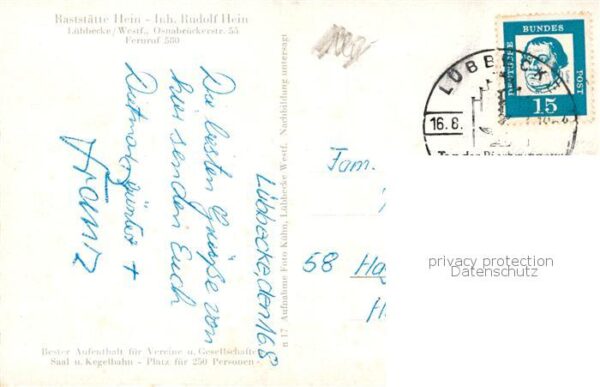 Raststätte Hein - Inh. Rudolf Hein
Lübbecke/Westf., Osnabrückerstr. 55
Fernruf 580
Lübbecke, den 16.8
Die besten Grüße von
hier senden Euch
Dietmar, Günter +
Franz
n 17 Aufnahme Foto Kühn, Lübbecke Westf. Nachbildung untersagt
Bester Aufenthalt für Vereine u. Gesellschafte
Saal u. Kegelbahn - Platz für 250 Personen -
DEUTSCHE
BUNDES
POST
15
LÜBBECKE
16.8.
Fam.
58 Ha
privacy protection
Datenschutz